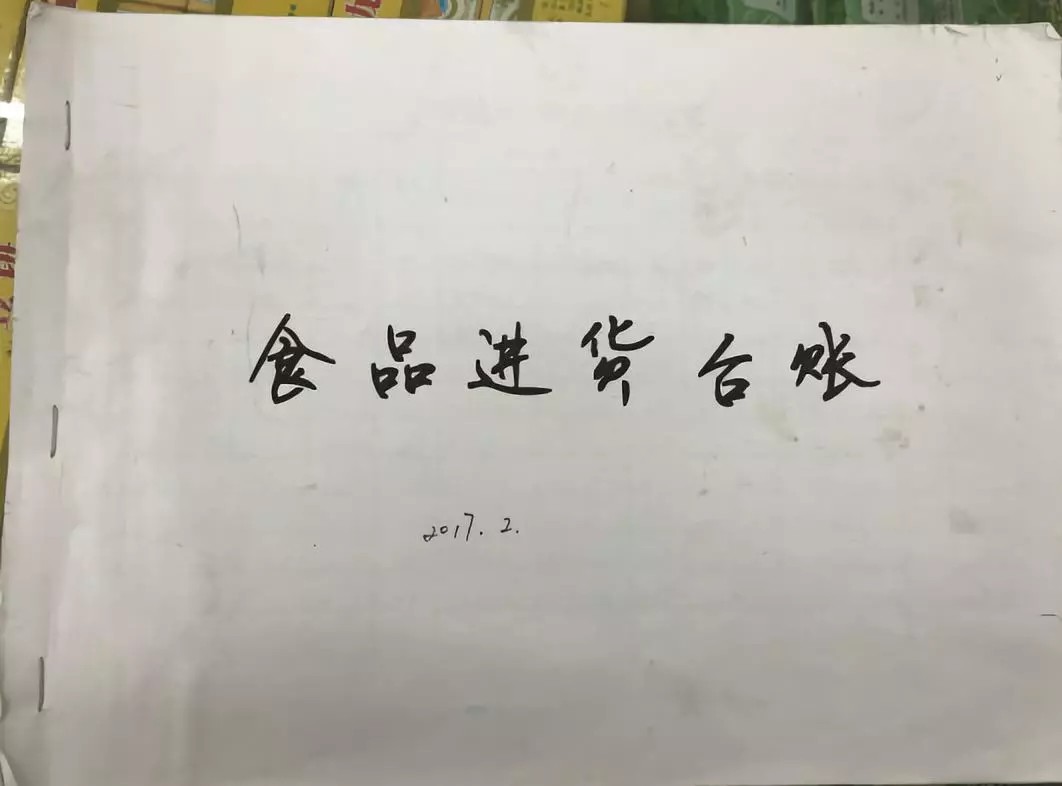 食品进货台账
2017.2.